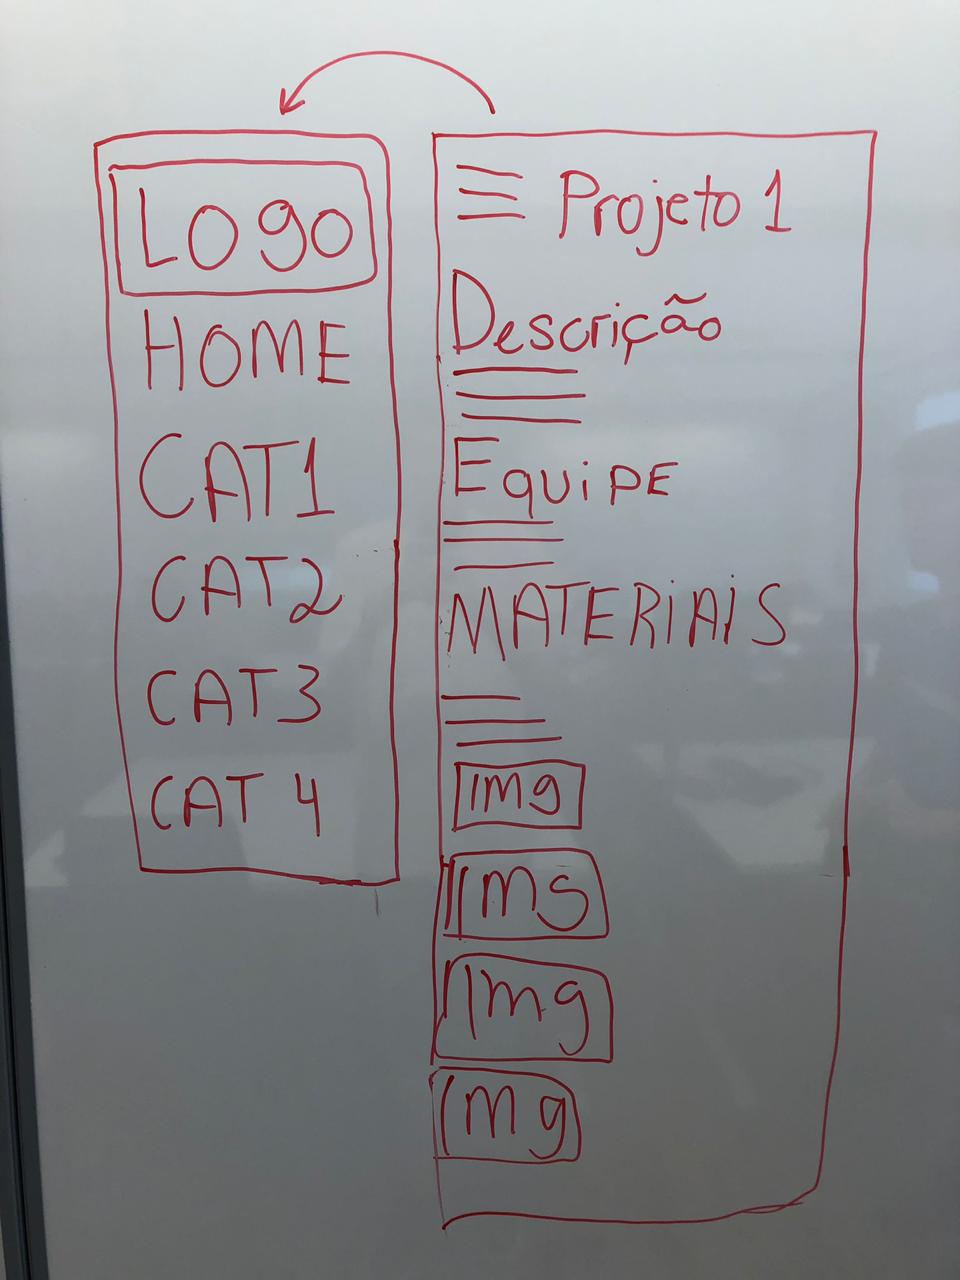 Logo
HOME
CAT1
CAT2
CAT3
CAT 4
Projeto 1
Descrição
EquiPE
MATERiAiS
Img
Ims
Img
Img